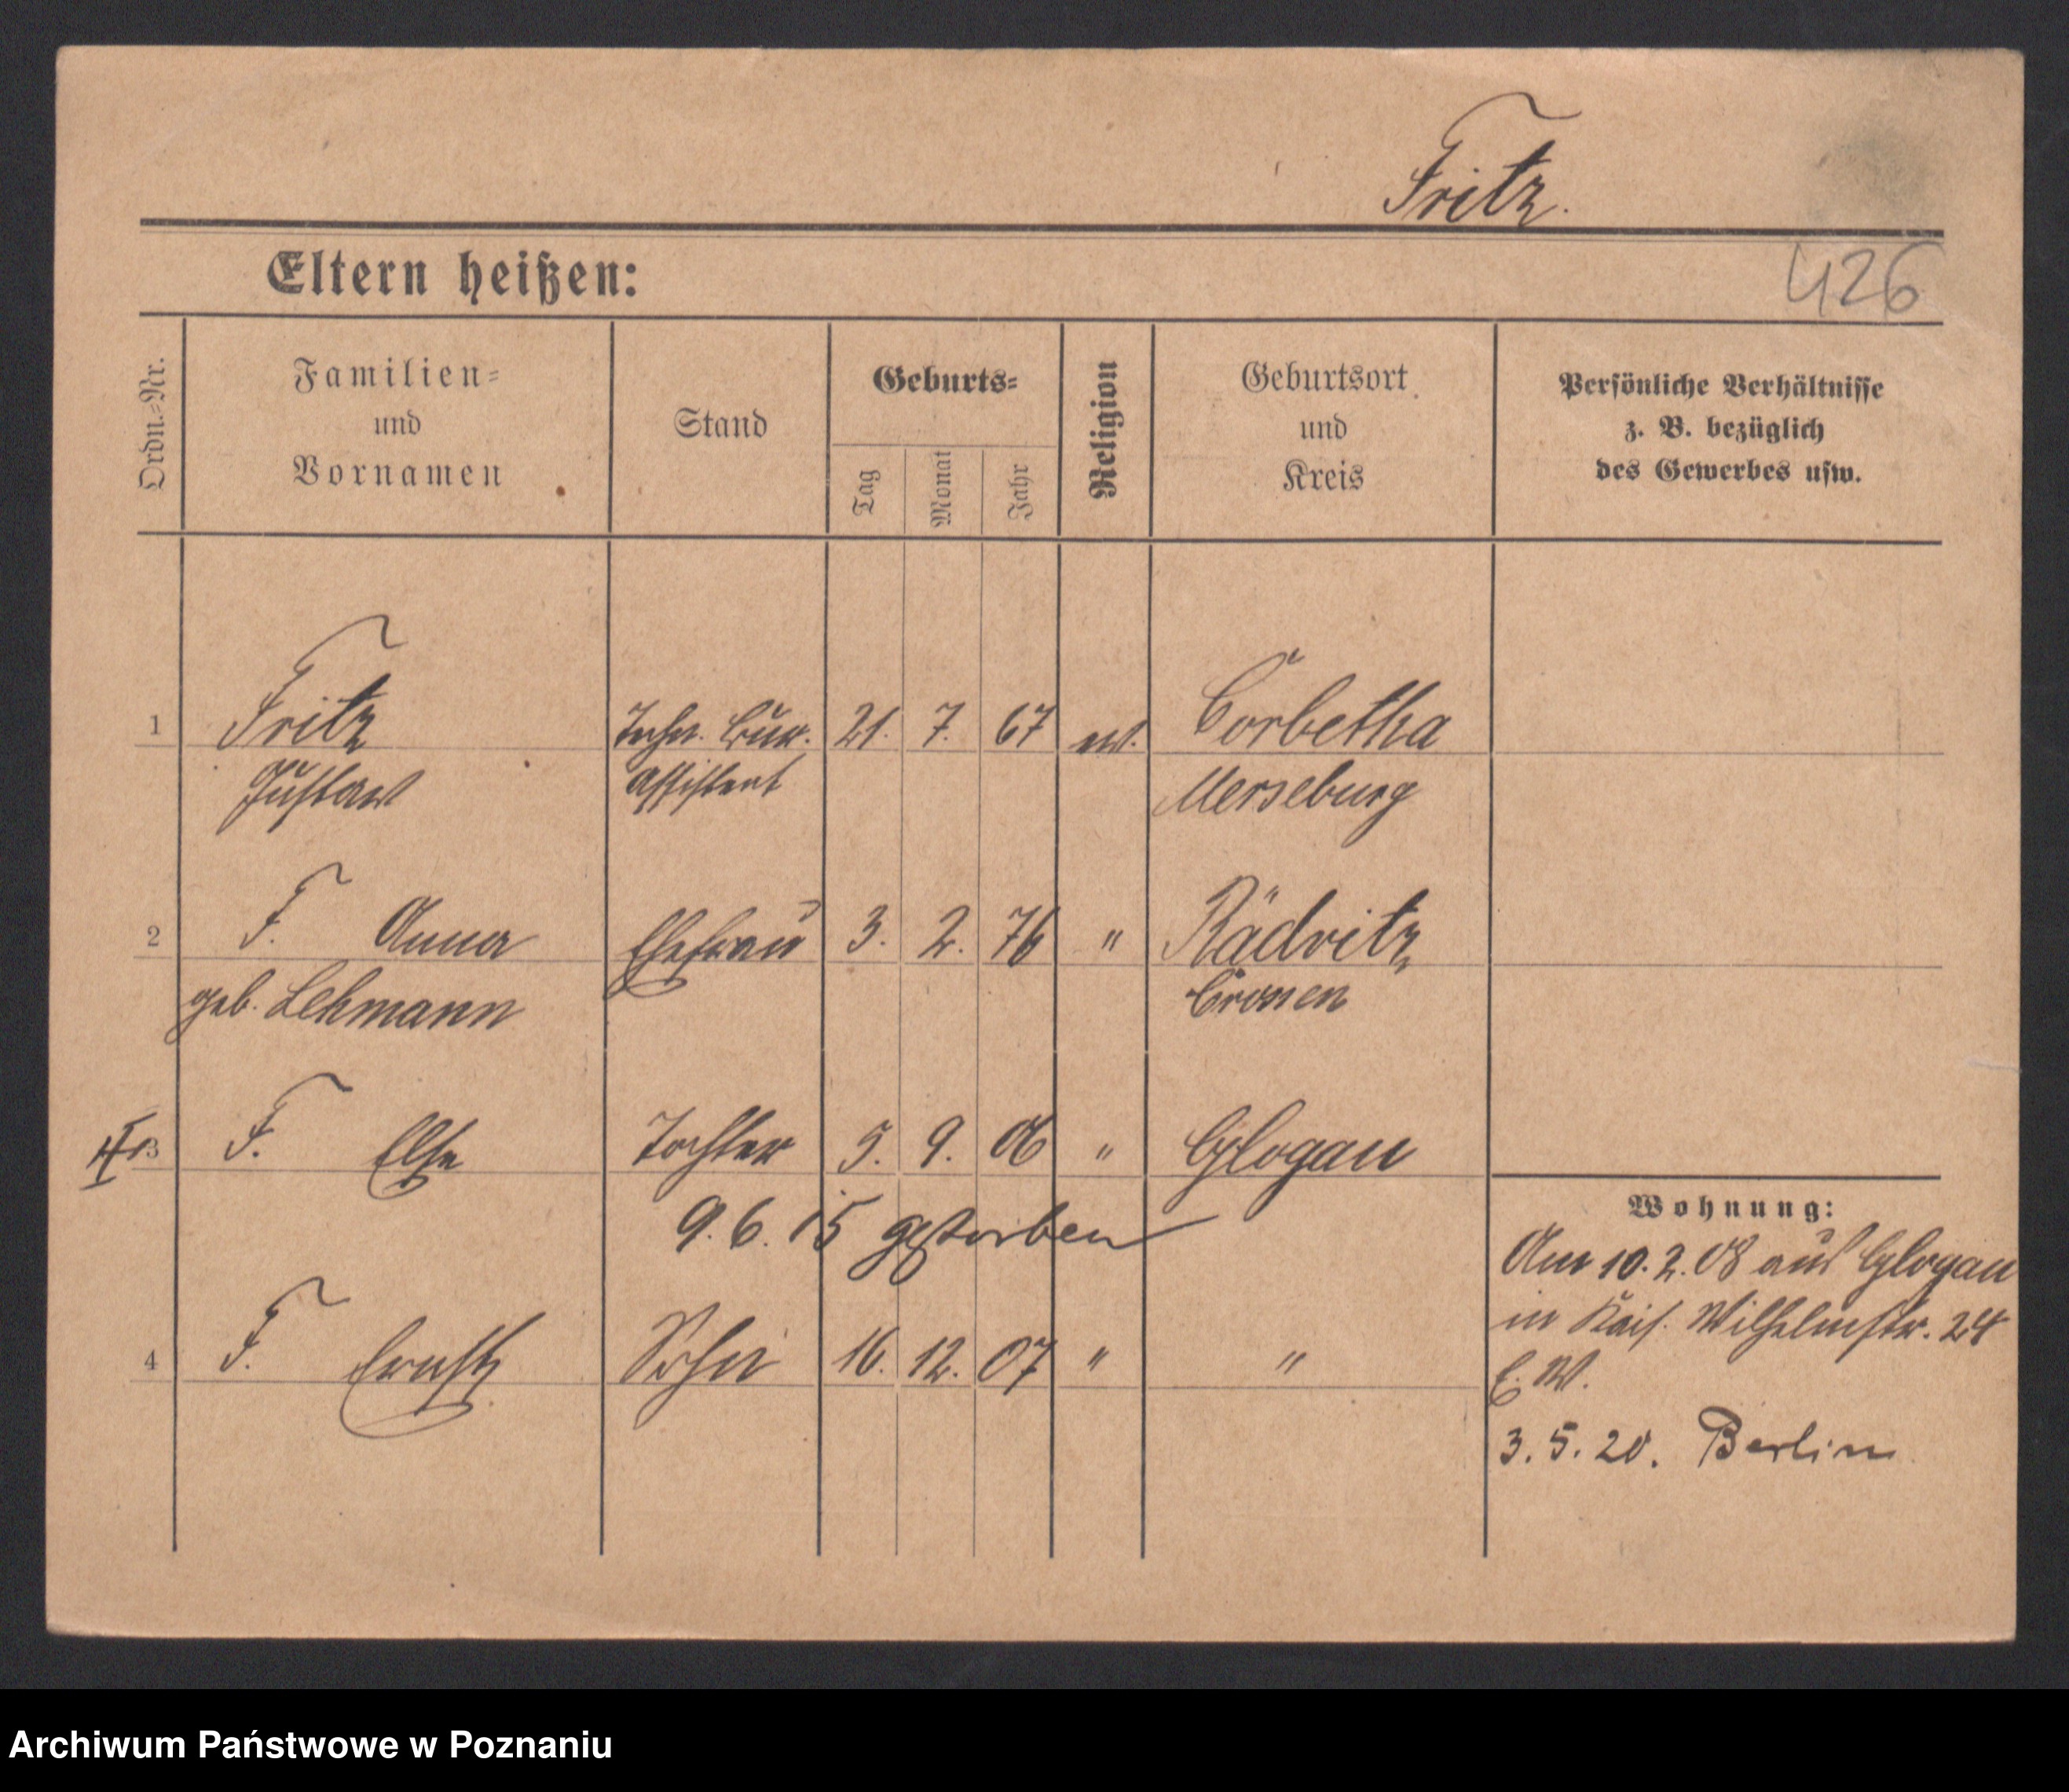 Fritz.
Eltern heißen:
426
Ordn.-Nr.
Familien-
und
Vornamen
Stand
Geburts-
Tag
Monat
Jahr
Religion
Geburtsort
und
Kreis
Persönliche Verhältnisse
z. B. bezüglich
des Gewerbes usw.
1 Fritz Techn. Bur. 21. 7. 67 ev. Corbetha
Gustav Assistent Merseburg
2 F. Anna Ehefrau 3. 2. 76 " Rädnitz
geb. Lehmann Crossen
3 F. Else Tochter 5. 9. 06 " Glogau
9. 6. 15 gestorben
4 F. Ernst Sohn 16. 12. 07 " "
Wohnung:
Am 10. 2. 08 aus Glogau
in Kais. Wilhelmstr. 24
E. W.
3. 5. 20. Berlin
Archiwum Państwowe w Poznaniu